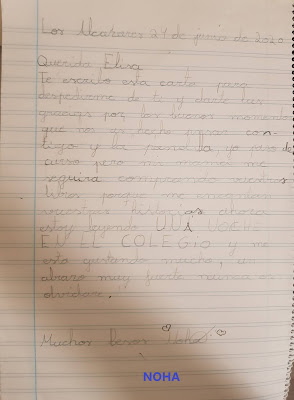 Los Alcázares 21 de junio de 2020
Querida Elisa
Te escribo esta carta para
despedirme de ti y darte las
gracias por los buenos momentos
que nos as hecho pasar con-
tigo y la pandilla, yo paso de
curso pero mi mamá me
seguira comprando vuestros
libros porque me encantan
vuestras historias ahora
estoy leyendo UNA NOCHE
EN EL COLEGIO y me
esta gustando mucho, un
abrazo muy fuerte nunca os
olvidare.
Muchos besos "Noha"
NOHA